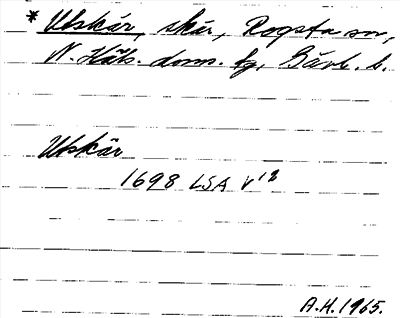 * Utskär, skär, Rogsta sn,
N. Häls. doms. fg, Gävl. l.
Utskär
1698 LSA V 12
A.H. 1965.